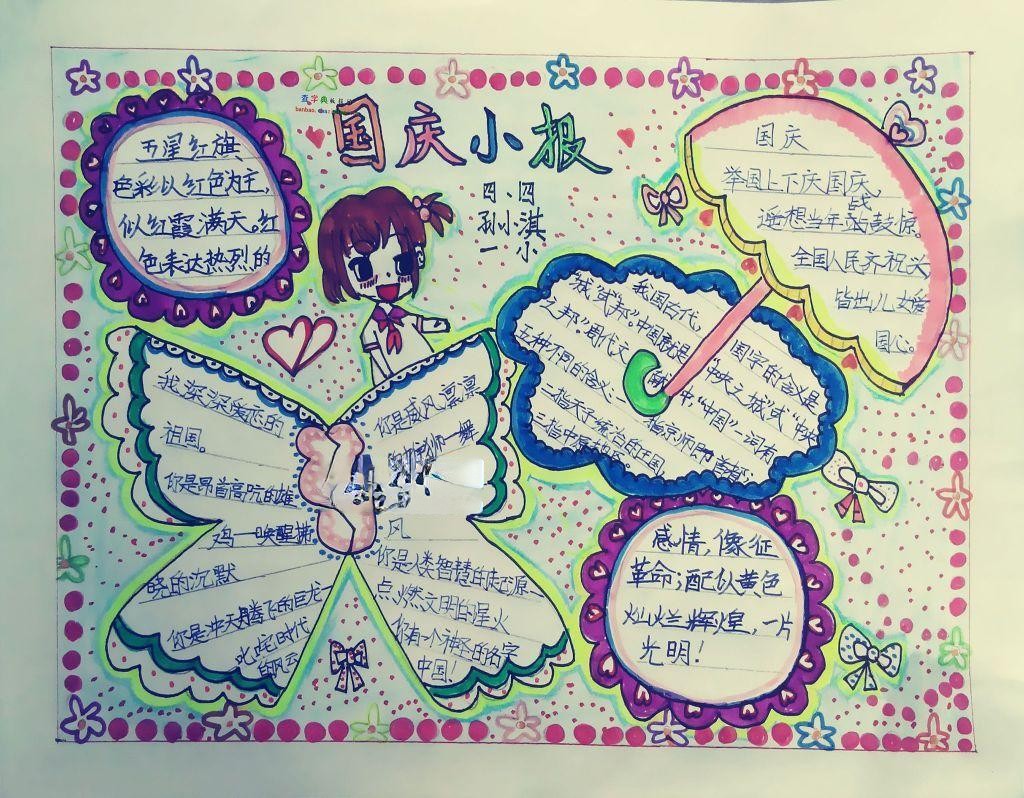 国庆小报
四、四
孙小淇
一小
五星红旗
色彩以红色为主,
似红霞满天。红
色表达热烈的
国庆
举国上下庆国庆,
遥想当年战鼓惊。
全国人民齐祝兴
皆出儿女爱
国心。
我深深爱恋的
祖国。
你是昂首高吭的雄
鸡—唤醒拂
晓的沉默
你是冲天腾飞的巨龙
叱咤时代
的风云
你是威风凛凛
舞
风
你是人类智慧的起源
点燃文明的星火
你有一个神圣的名字
中国!
我国古代,
国字的含义是
"城"或"邦"。中国就是
"中央之城"或"中央
之邦"。周代文
中"中国"一词有
五种不同的含义:
一指京师
二指天子统治的王国
感情,像征
革命;配以黄色
灿烂辉煌,一片
光明!